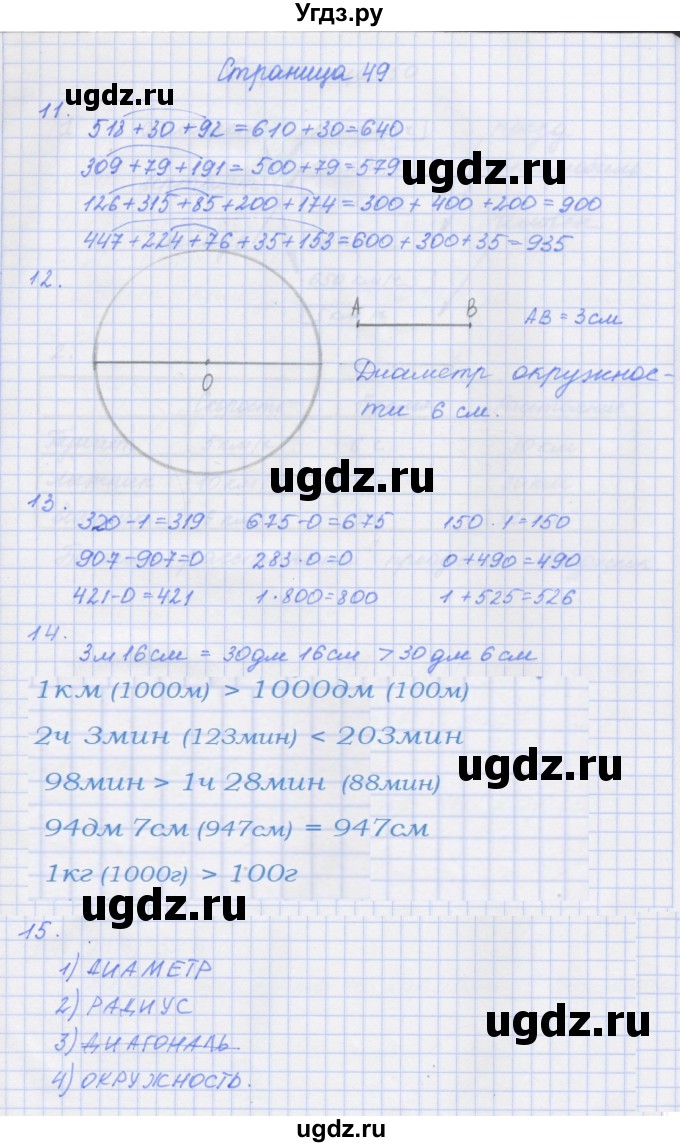 Угдз.ру
Страница 49
ugdz.ru
11.
518 + 30 + 92 = 610 + 30 = 640
309 + 79 + 191 = 500 + 79 = 579
ugdz.ru
126 + 315 + 85 + 200 + 174 = 300 + 400 + 200 = 900
447 + 224 + 76 + 35 + 153 = 600 + 300 + 35 = 935
12.
A B
AB = 3 см
O
Диаметр окружнос-
ти 6 см.
ugdz.ru
13.
320 - 1 = 319 675 - 0 = 675 150 · 1 = 150
907 - 907 = 0 283 · 0 = 0 0 + 490 = 490
421 - 0 = 421 1 · 800 = 800 1 + 525 = 526
14.
3 м 16 см = 30 дм 16 см > 30 дм 6 см
1км (1000м) > 1000дм (100м)
2ч 3мин (123мин) < 203мин
ugdz.ru
98мин > 1ч 28мин (88мин)
94дм 7см (947см) = 947см
1кг (1000г) > 100г
ugdz.ru
15.
1) ДИАМЕТР
2) РАДИУС
ugdz.ru
3) ДИАГОНАЛЬ
4) ОКРУЖНОСТЬ.
ugdz.ru